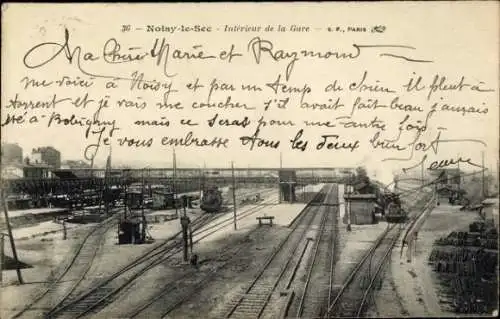 36 - Noisy-le-Sec - Intérieur de la Gare - E. F., PARIS
Ma Chère Marie et Raymond
me voici à Noisy et par un temps de chien il pleut à
torrent et je vais me coucher s'il avait fait beau j'aurais
été à Bobigny mais ce seras pour une autre fois
je vous embrasse tous les deux bien fort